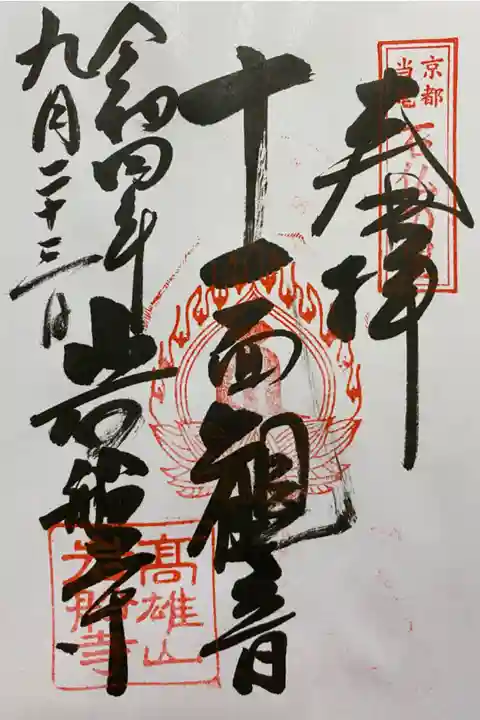 京都
当尾
石仏の里
奉拝
十一面観音
令和四年
九月二十三日
岩船寺
髙雄山
岩船寺